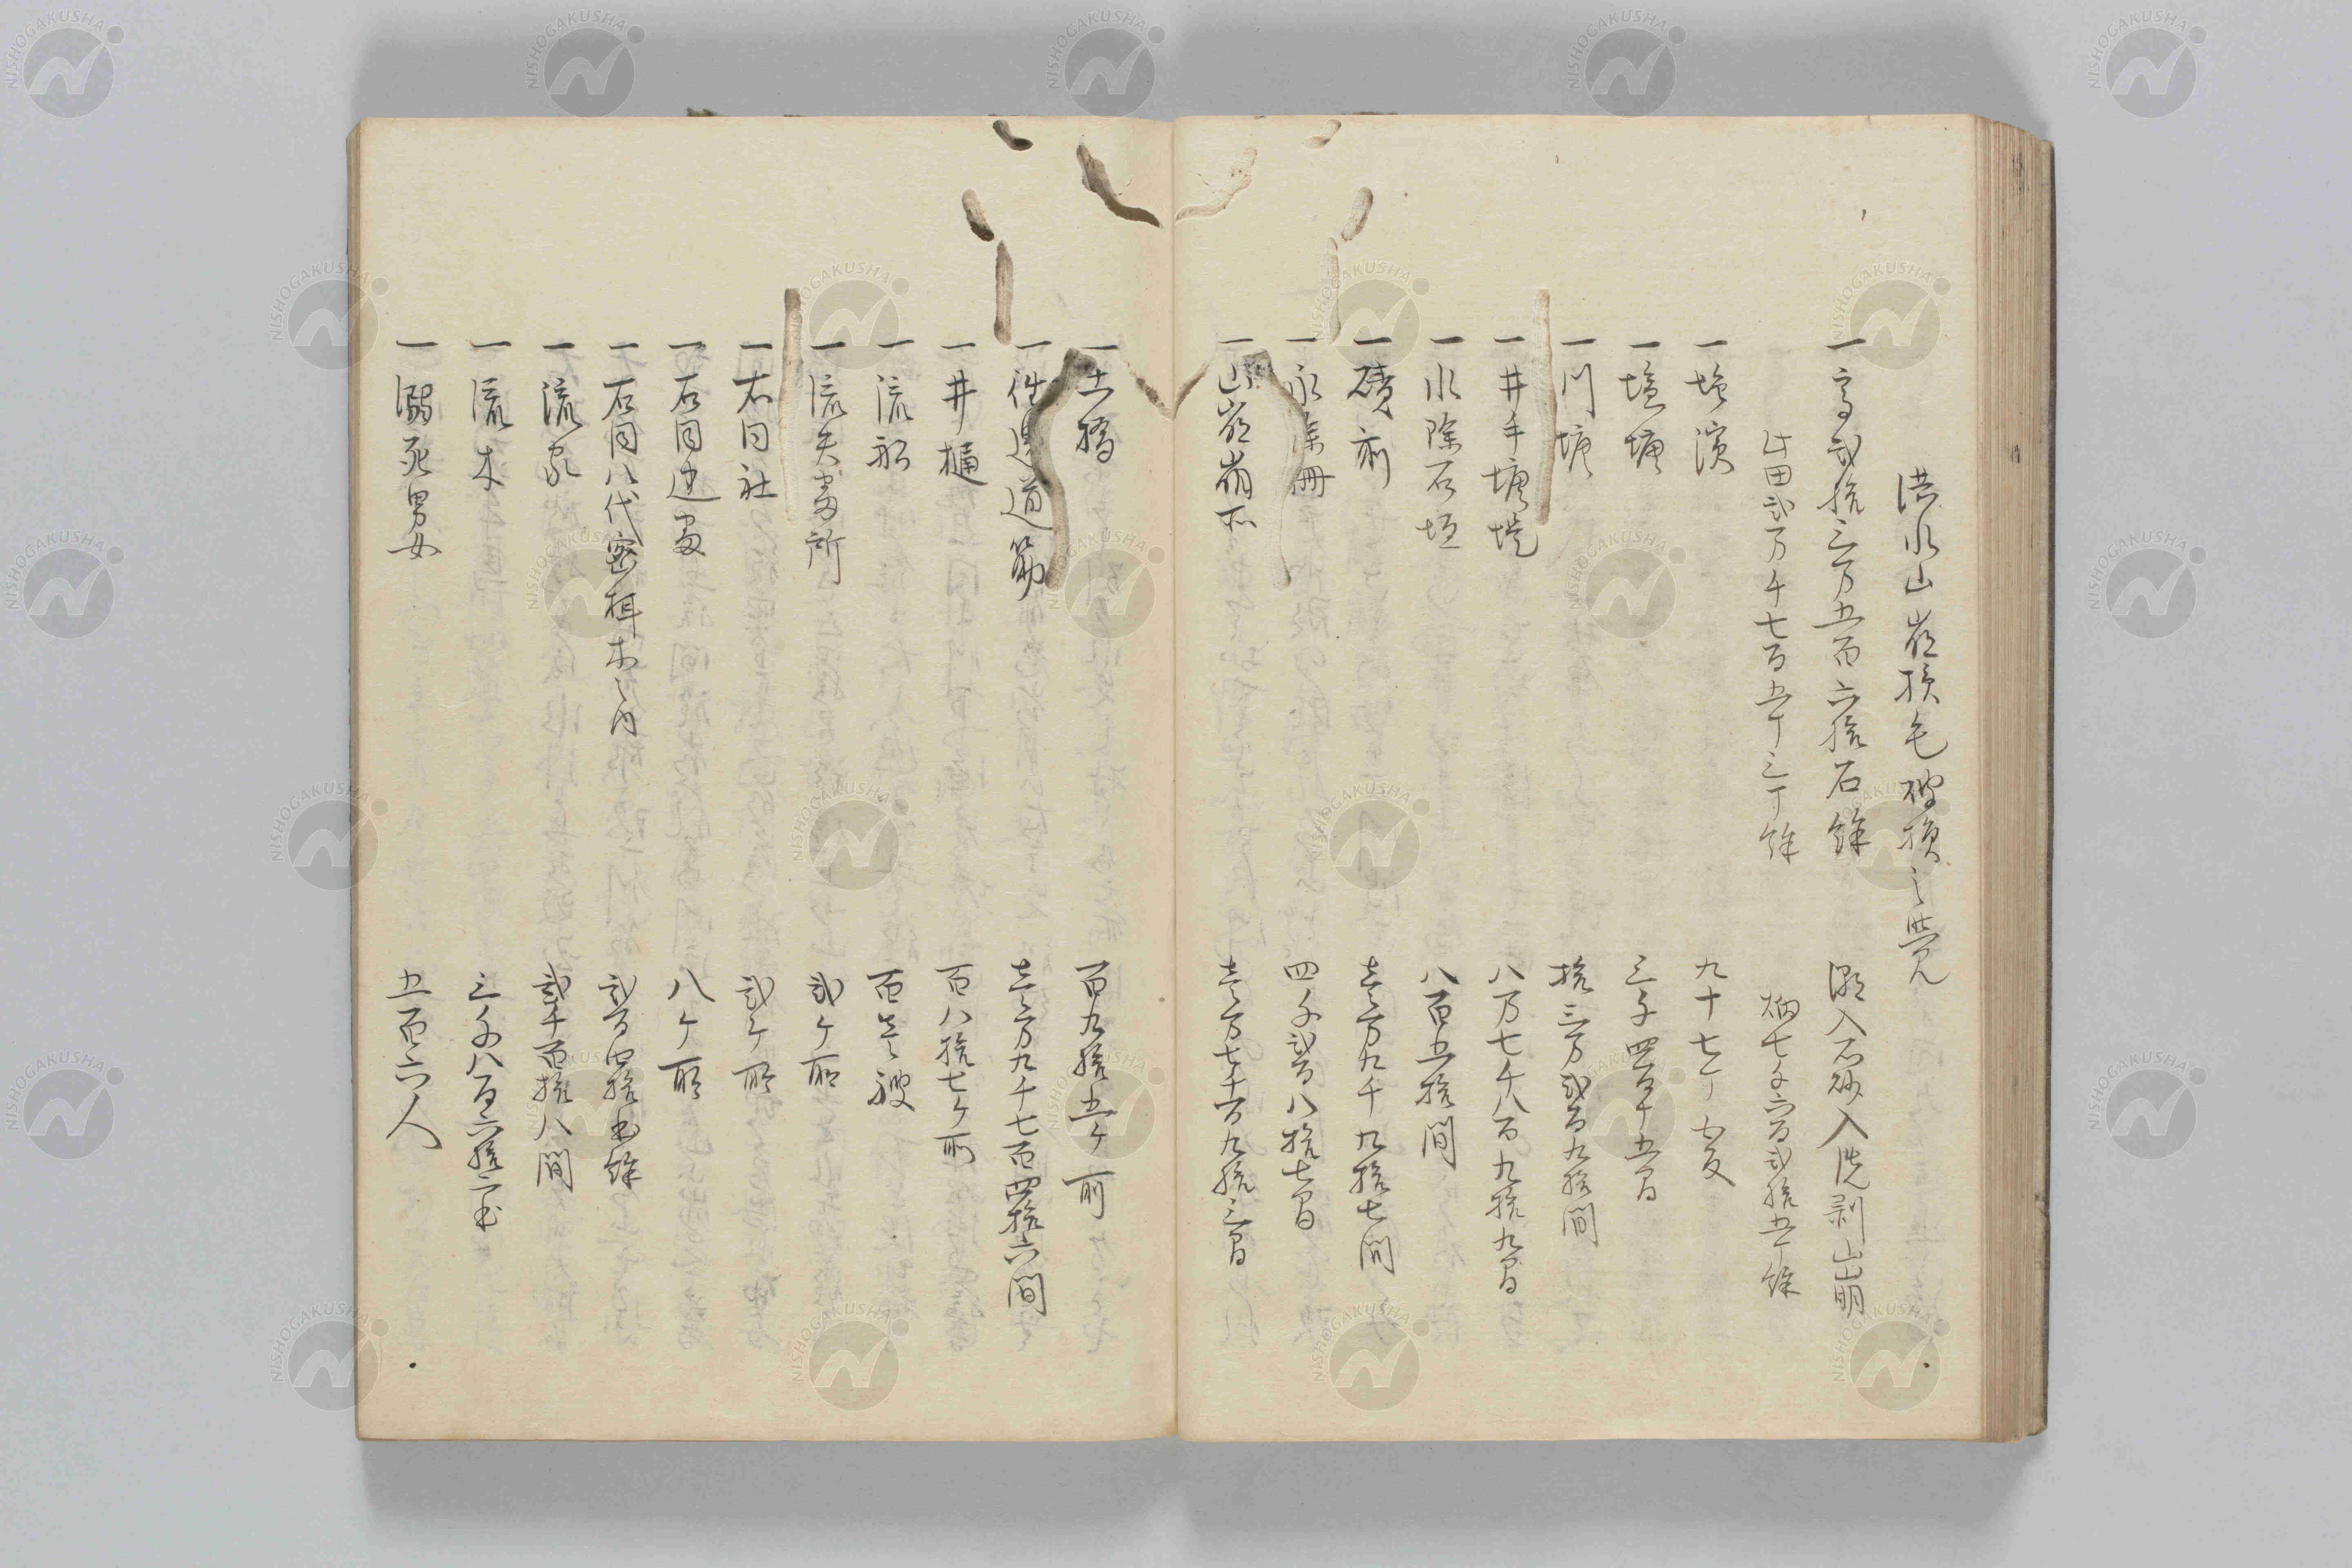 洪水山崩損毛破損之覚
一高弐拾三万五百六拾石餘　潮入石砂入洗剥山崩
此田弐万千七百五十三丁餘　畑七千六百弐拾五丁餘
一塩濱　九十七丁七反
一塩塘　三千四百十五間
一川塘　拾三万弐百九拾間
一井手塘堤　八万七千八百九拾九間
一水除石垣　八百五拾間
一磧刎　壱万九千九拾七間
一水除冊　四千弐百八拾七間
一山崩崩所　壱万七千百九拾三間
一土橋　百九拾五ケ所
一往還道筋　壱万九千七百四拾六間
一井樋　百八拾七ケ所
一流船　百壱艘
一流失番所　弐ケ所
一右同社　弐ケ所
一右同辻番　八ケ所
一右同八代密柑木之内　弐百四拾本餘
一流家　弐千百拾八間
一流木　三千八百六拾二本
一溺死男女　五百六人
NISHOGAKUSHA